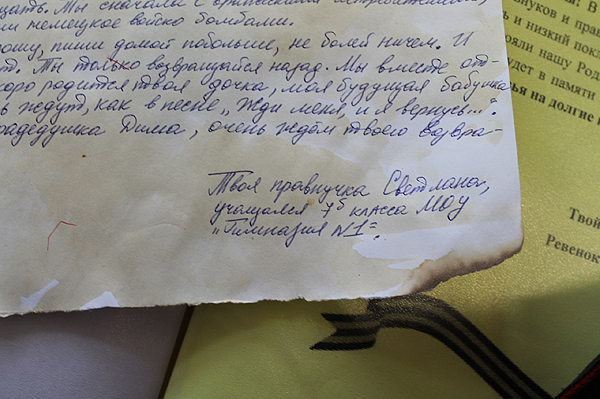 щать. Мы сначала с
ли немецкое войско бомбами.
рошу, пиши домой побольше, не болей ничем. И
т. Ты только возвращайся назад. Мы вместе от-
коро родится твоя дочка, моя будущая бабушка
ь ждут, как в песне „Жди меня, и я вернусь...".
радедушка Дима, очень ждём твоего возвра-
Твоя правнучка Светлана,
учащаяся 7б класса МОУ
„Гимназия №1".
В
нуков и прав
и низкий покл
ояли нашу Род
удет в памяти
ья на долгие
Твой
Ревенок